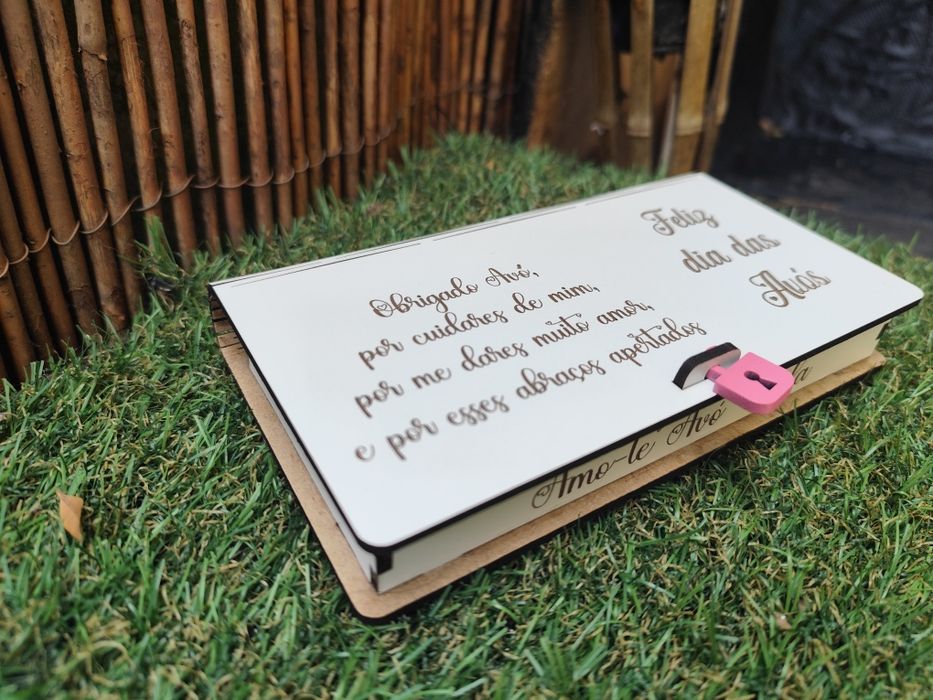 Obrigado Avó,
por cuidares de mim,
por me dares muito amor,
e por esses abraços apertados
Feliz
dia das
Avós
Amo-te Avó